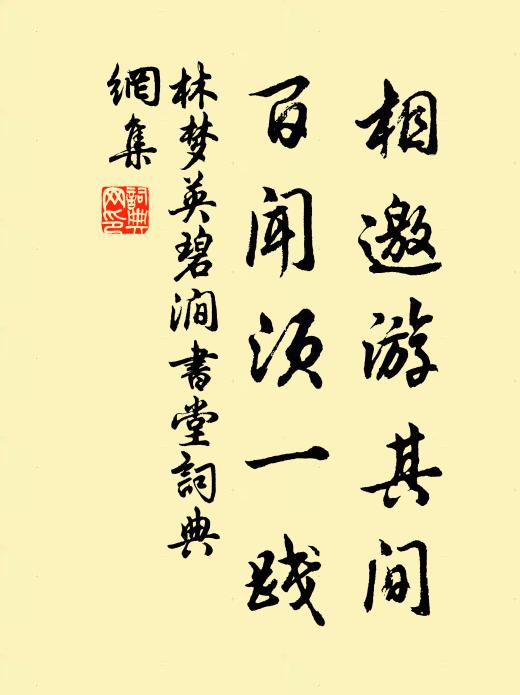 相邀游其间
百闻须一践
林梦英碧涧书堂詞典
網集
詞典
网印